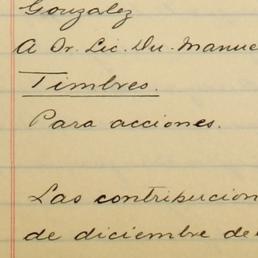 Gonzalez
A Dr. Lic. Du. Manue
Timbres.
Para acciones.
Las contribucion
de diciembre de